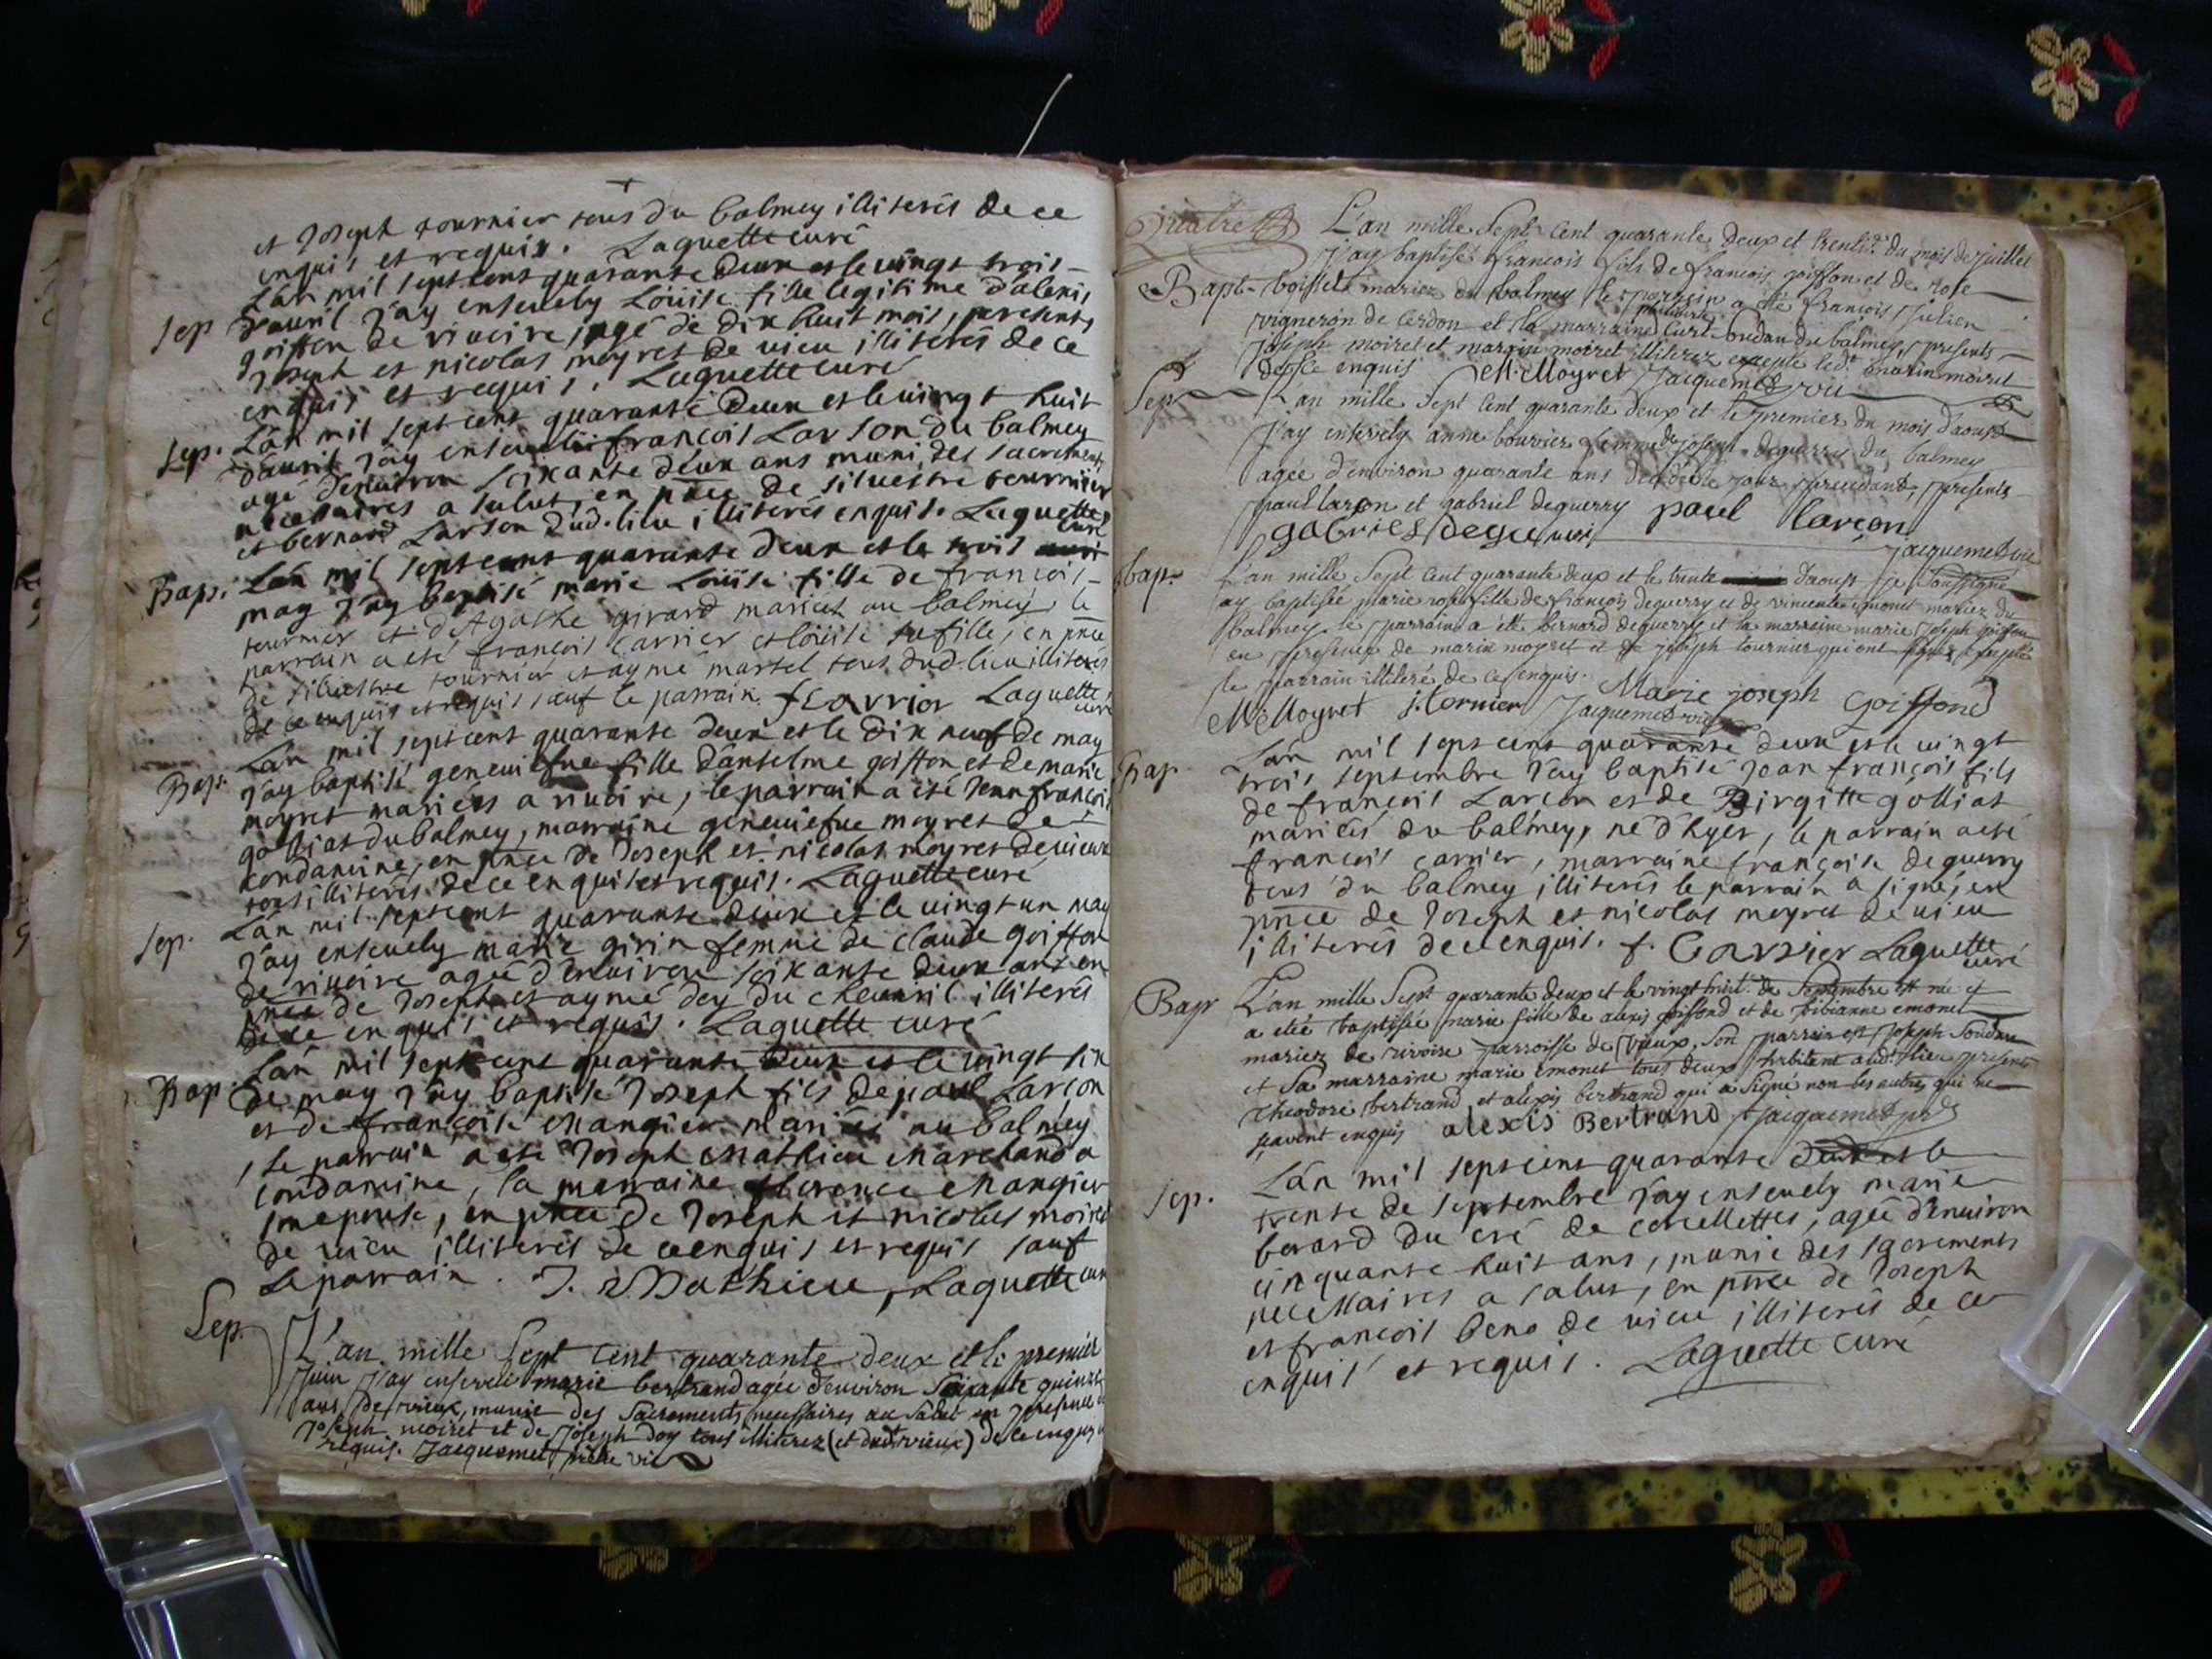 et Joseph tournier tous du balmey illiterés de ce
enquis et requis. Laguette curé
Sep L'an mil sept cent quarante deux et le vingt trois
d'avril j'ay ensevely Loüise fille legitime d'alexis
goiffon de rivoire agé de dix huit mois, presents
Joseph et nicolas moyret de vieu illiterés de ce
enquis et requis. Laguette curé
Sep. L'an mil sept cent quarante deux et le vingt huit
d'avril j'ay enseveli françois Larson du balmey
agé d'environ soixante deux ans muni des sacrements
necessaires a salut, en pnce de silvestre tournier
et bernard Larson dud. lieu illiterés enquis. Laguette
curé
Bap. L'an mil sept cent quarante deux et le trois
may j'ay baptisé marie Loüise fille de françois
tournier et d'Agathe girard mariés au balmey, le
parrain a eté françois Carrier et loüise sa fille, en pnce
de silvestre tournier et aymé martel tous dud. lieu illiterés
de ce enquis et requis sauf le parrain. f Carrier Laguette
curé
Bap. L'an mil sept cent quarante deux et le dix neuf de may
j'ay baptisé geneviefve fille d'anselme goiffon et de marie
moyret mariés a rivoire, le parrain a eté Jean françois
golliat du balmey, marraine geneviefve moyret de
condamine, en pnce de Joseph et nicolas moyret de vieux
tous illiterés de ce enquis et requis. Laguette curé
Sep. L'an mil sept cent quarante deux et le vingt un may
j'ay ensevely marie girin femme de claude goiffon
de rivoire agée d'environ soixante deux ans en
pnce de Joseph et aymé dey du chevril illiterés
de ce enquis et requis. Laguette curé
Bap. L'an mil sept cent quarante deux et le vingt six
de may j'ay baptisé Joseph fils de paul Larçon
et de françoise Mangier mariés au balmey
, le parrain a eté Joseph Mathieu Marchand a
condamine, la marraine florence Mangier
son epouse, en pnce de Joseph et nicolas moiret
de vieu illiterés de ce enquis et requis sauf
le parrain. J. Mathieu, Laguette curé
Sep. L'an mille Sept cent quarante deux et le premier
Juin j'ay enseveli marie bertrand agée d'environ Soixante quinze
ans, de vieux, munie des Sacrements necessaires au Salut en presence de
Joseph moiret et de Joseph Dey tous illiterez (et dudt vieux) de ce enquis et
requis. Jacquemet prêtre vic
quatre
L'an mille Sept Cent quarante deux et trente du mois de juillet
j'ay baptisé francois fils de francois goiffon et de rose
Bapt. boisset mariez du balmey le parrain a été françois Julien
vigneron de Cerdon et la marraine Curt Soudan du balmey, presents
Joseph moiret et marin moiret illiterez excepté ledt marin moiret
de ce enquis M. Moyret Jacquemet vic
Sep L'an mille Sept Cent quarante deux et le premier du mois d'aoust
J'ay ensevely anne bouvier femme de joseph deguerry du balmey
agée d'environ quarante ans decedée le jour precedant, presents
paul larçon et gabriel deguerry paul larçon
gabriel deguerri
Jacquemet vic
bap. L'an mille Sept Cent quarante deux et le trente d'aoust je Soussigné
ay baptisée marie rose fille de françois deguerry et de vincente emonet mariez du
balmey le parrain a été bernard deguerry et la marraine marie Joseph goiffon
en presence de marin moyret et de joseph tournier qui ont signé excepté
le parrain illiteré de ce enquis. Marie joseph Goiffond
M Moyret J tornier Jacquemet vic
Bap. L'an mil sept cent quarante deux et le vingt
trois septembre j'ay baptisé Jean françois fils
de françois Larçon et de Birgitte golliat
mariés du balmey, né d'hyer, le parrain a eté
françois carrier, marraine françoise deguerry
tous du balmey illiterés le parrain a signé, en
pnce de Joseph et nicolas moyret de vieu
illiterés de ce enquis. f. Carrier Laguette
curé
Bapt L'an mille Sept quarante deux et le vingt huit de Septembre est née et
a etée baptisée marie fille de alexis goiffond et de bibianne emonet
mariez de rivoire parroisse de vieux, Son parrain est joseph Soudan
et Sa marraine marie emonet tous deux habitent audt lieu presents
Theodore bertrand et alexis bertrand qui a Signé non les autres qui ne
scavent enquis alexis Bertrand Jacquemet
Sep. L'an mil sept cent quarante deux et le
trente de septembre j'ay ensevely marie
berard du cré de corcellettes, agée d'environ
cinquante huit ans, munie des sacrements
necessaires a salut, en pnce de Joseph
et françois bene de vieu illiterés de ce
enquis et requis. Laguette curé